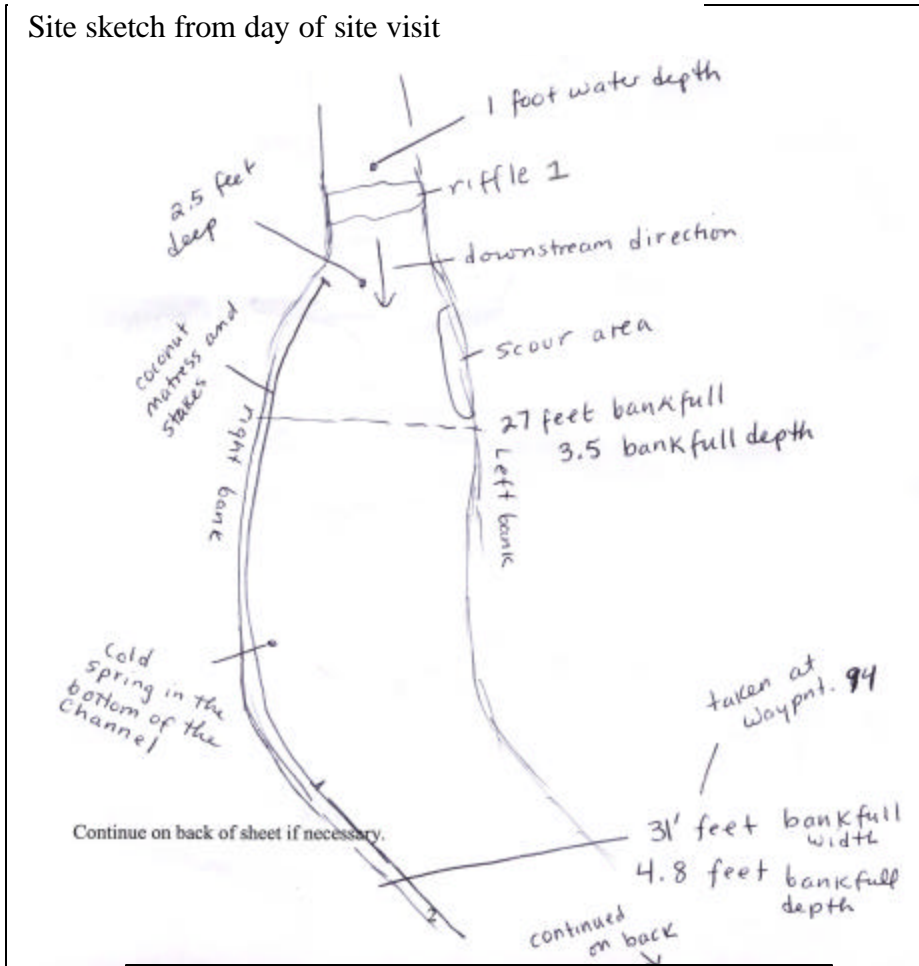 Site sketch from day of site visit
1 foot water depth
riffle 1
2.5 feet
deep
downstream direction
coconut
matress and
stakes
scour area
27 feet bankfull
3.5 bankfull depth
right bank
Left bank
Cold
spring in the
bottom of the
Channel
taken at
waypnt. 94
Continue on back of sheet if necessary.
31' feet bankfull
width
4.8 feet bankfull
depth
2
continued
on back